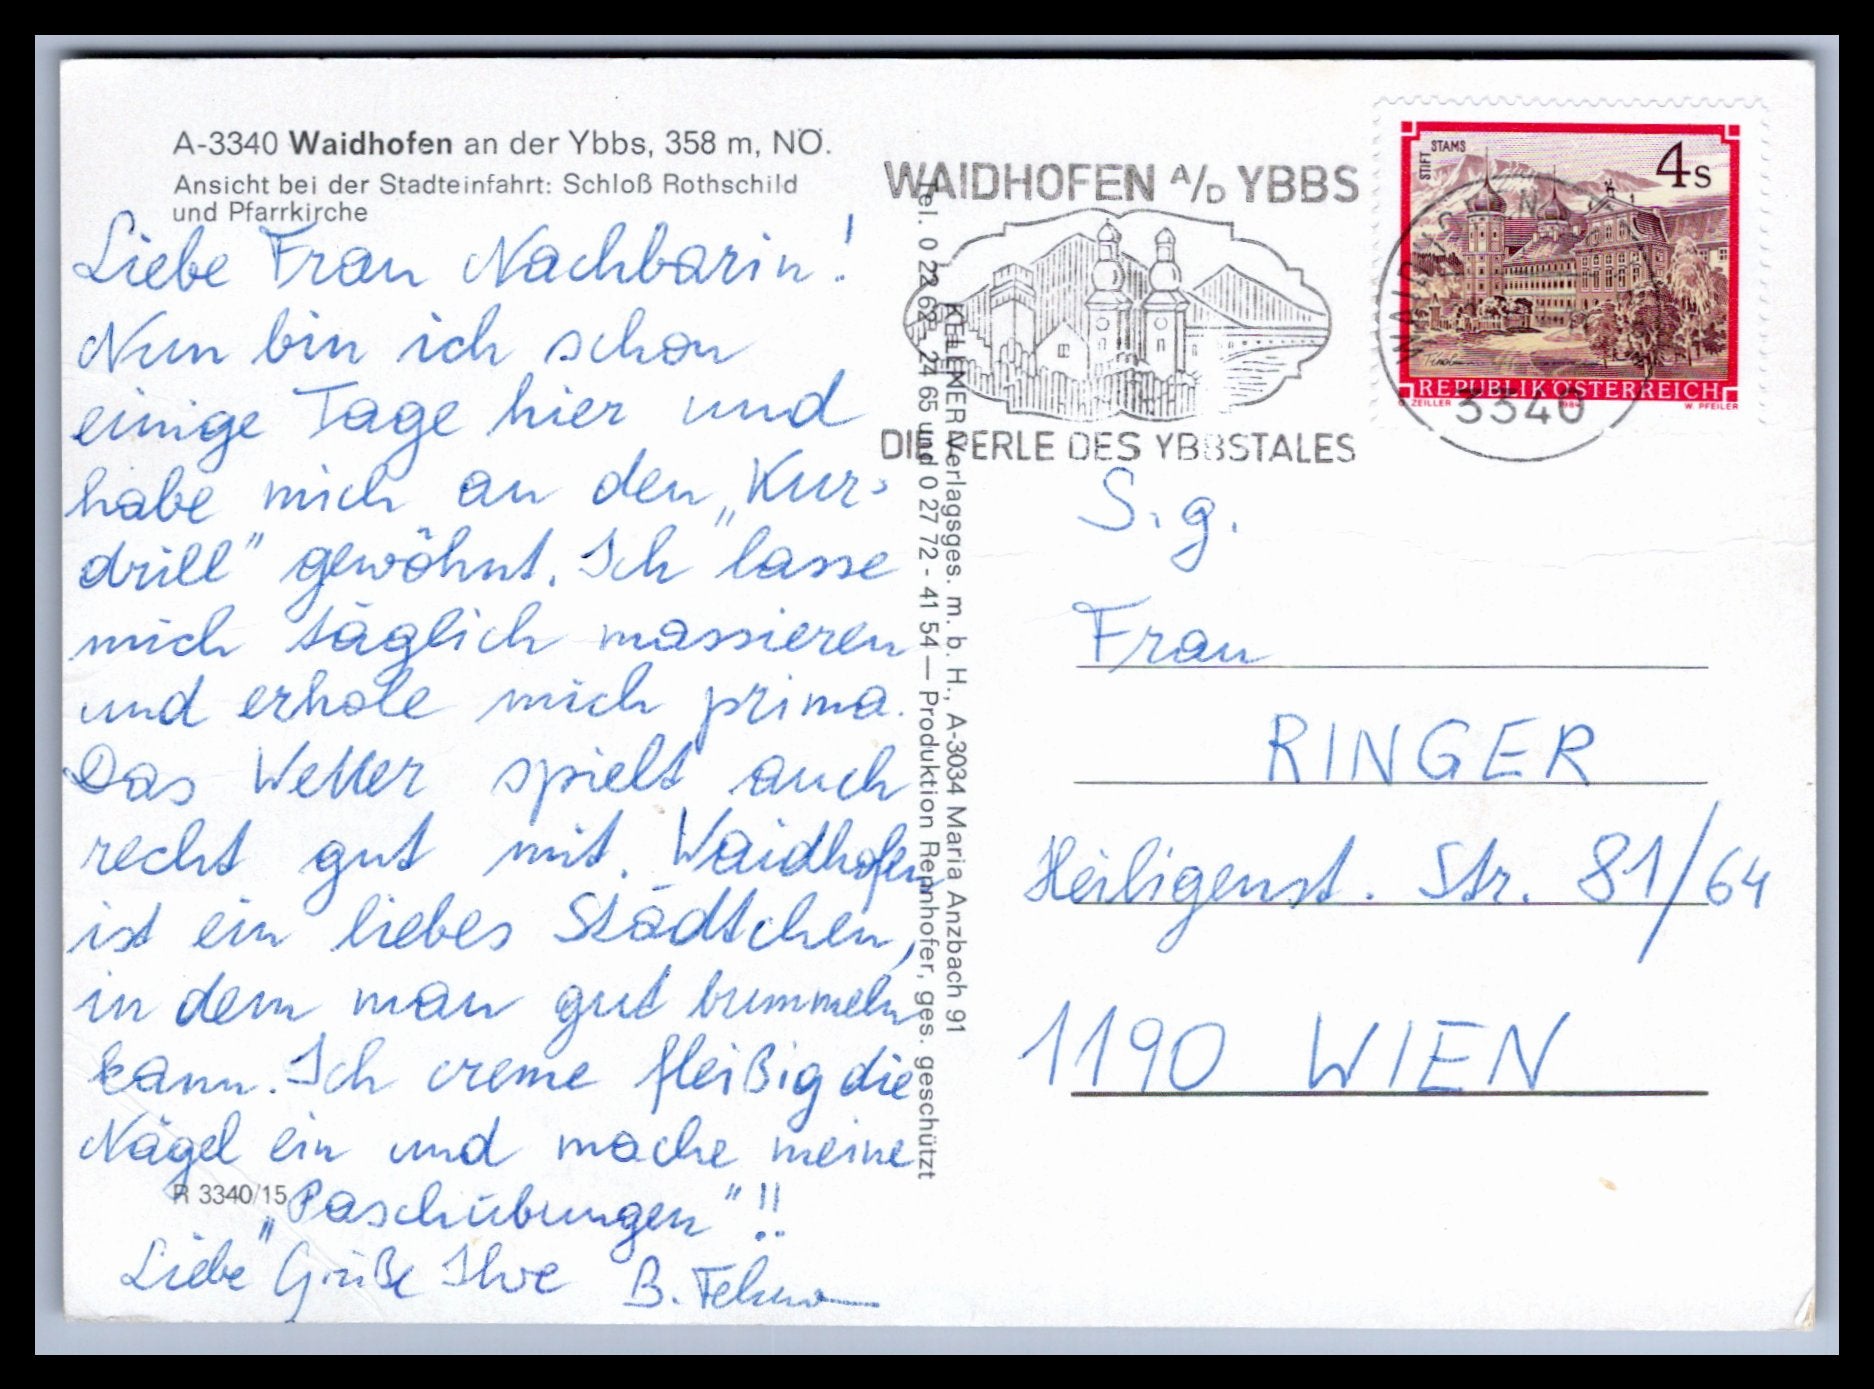 A-3340 Waidhofen an der Ybbs, 358 m, NÖ.
Ansicht bei der Stadteinfahrt: Schloß Rothschild
und Pfarrkirche
Liebe Frau Nachbarin!
Nun bin ich schon
einige Tage hier und
habe mich an den „Kur-
drill" gewöhnt. Ich lasse
mich täglich massieren
und erhole mich prima.
Das Wetter spielt auch
recht gut mit. Waidhofen
ist ein liebes Städtchen,
in dem man gut bummeln
kann. Ich creme fleißig die
Nägel ein und mache meine
„Paschübungen"!!
Liebe Grüße Ihre B.
R 3340/15
Tel. 0 22 62 - 24 65 und 0 27 72 - 41 54 — Produktion Rennhofer, ges. geschützt
KELLNER Verlagsges. m. b. H., A-3034 Maria Anzbach 91
WAIDHOFEN A/D YBBS
DIE PERLE DES YBBSTALES
STIFT STAMS
4 S
Tirol
REPUBLIK ÖSTERREICH
O. ZEILLER 1984 W. PFEILER
3340
S. g.
Frau
RINGER
Heiligenst. Str. 81/64
1190 WIEN